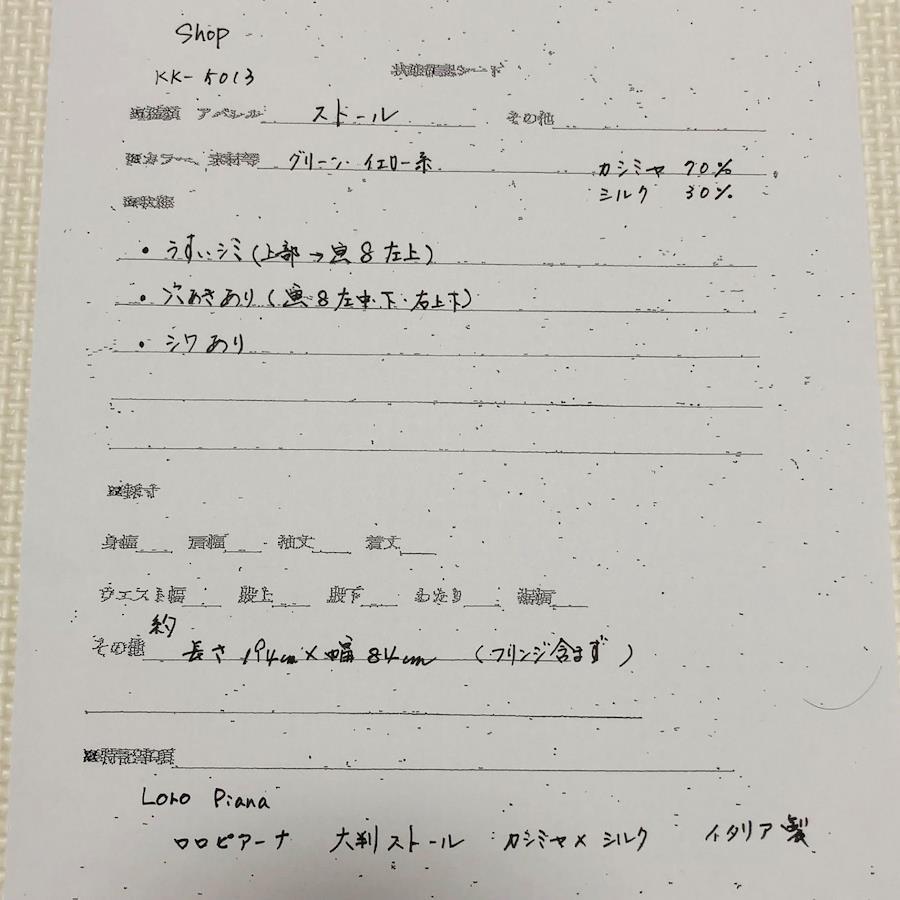 Shop
KK-5013
状態確認シート
※種類 アパレル ストール その他
※カラー、素材等 グリーン・イエロー系 カシミヤ 70%
シルク 30%
※状態
・うすいシミ(上部→画8左上)
・穴あきあり(画8左中・下・右上下)
・シワあり
※採寸
身幅 肩幅 袖丈 着丈
ウエスト幅 股上 股下 わたり 裾幅
その他 約 長さ194cm×幅84cm (フリンジ含まず)
※特記事項
Loro Piana
ロロピアーナ 大判ストール カシミヤ×シルク イタリア製